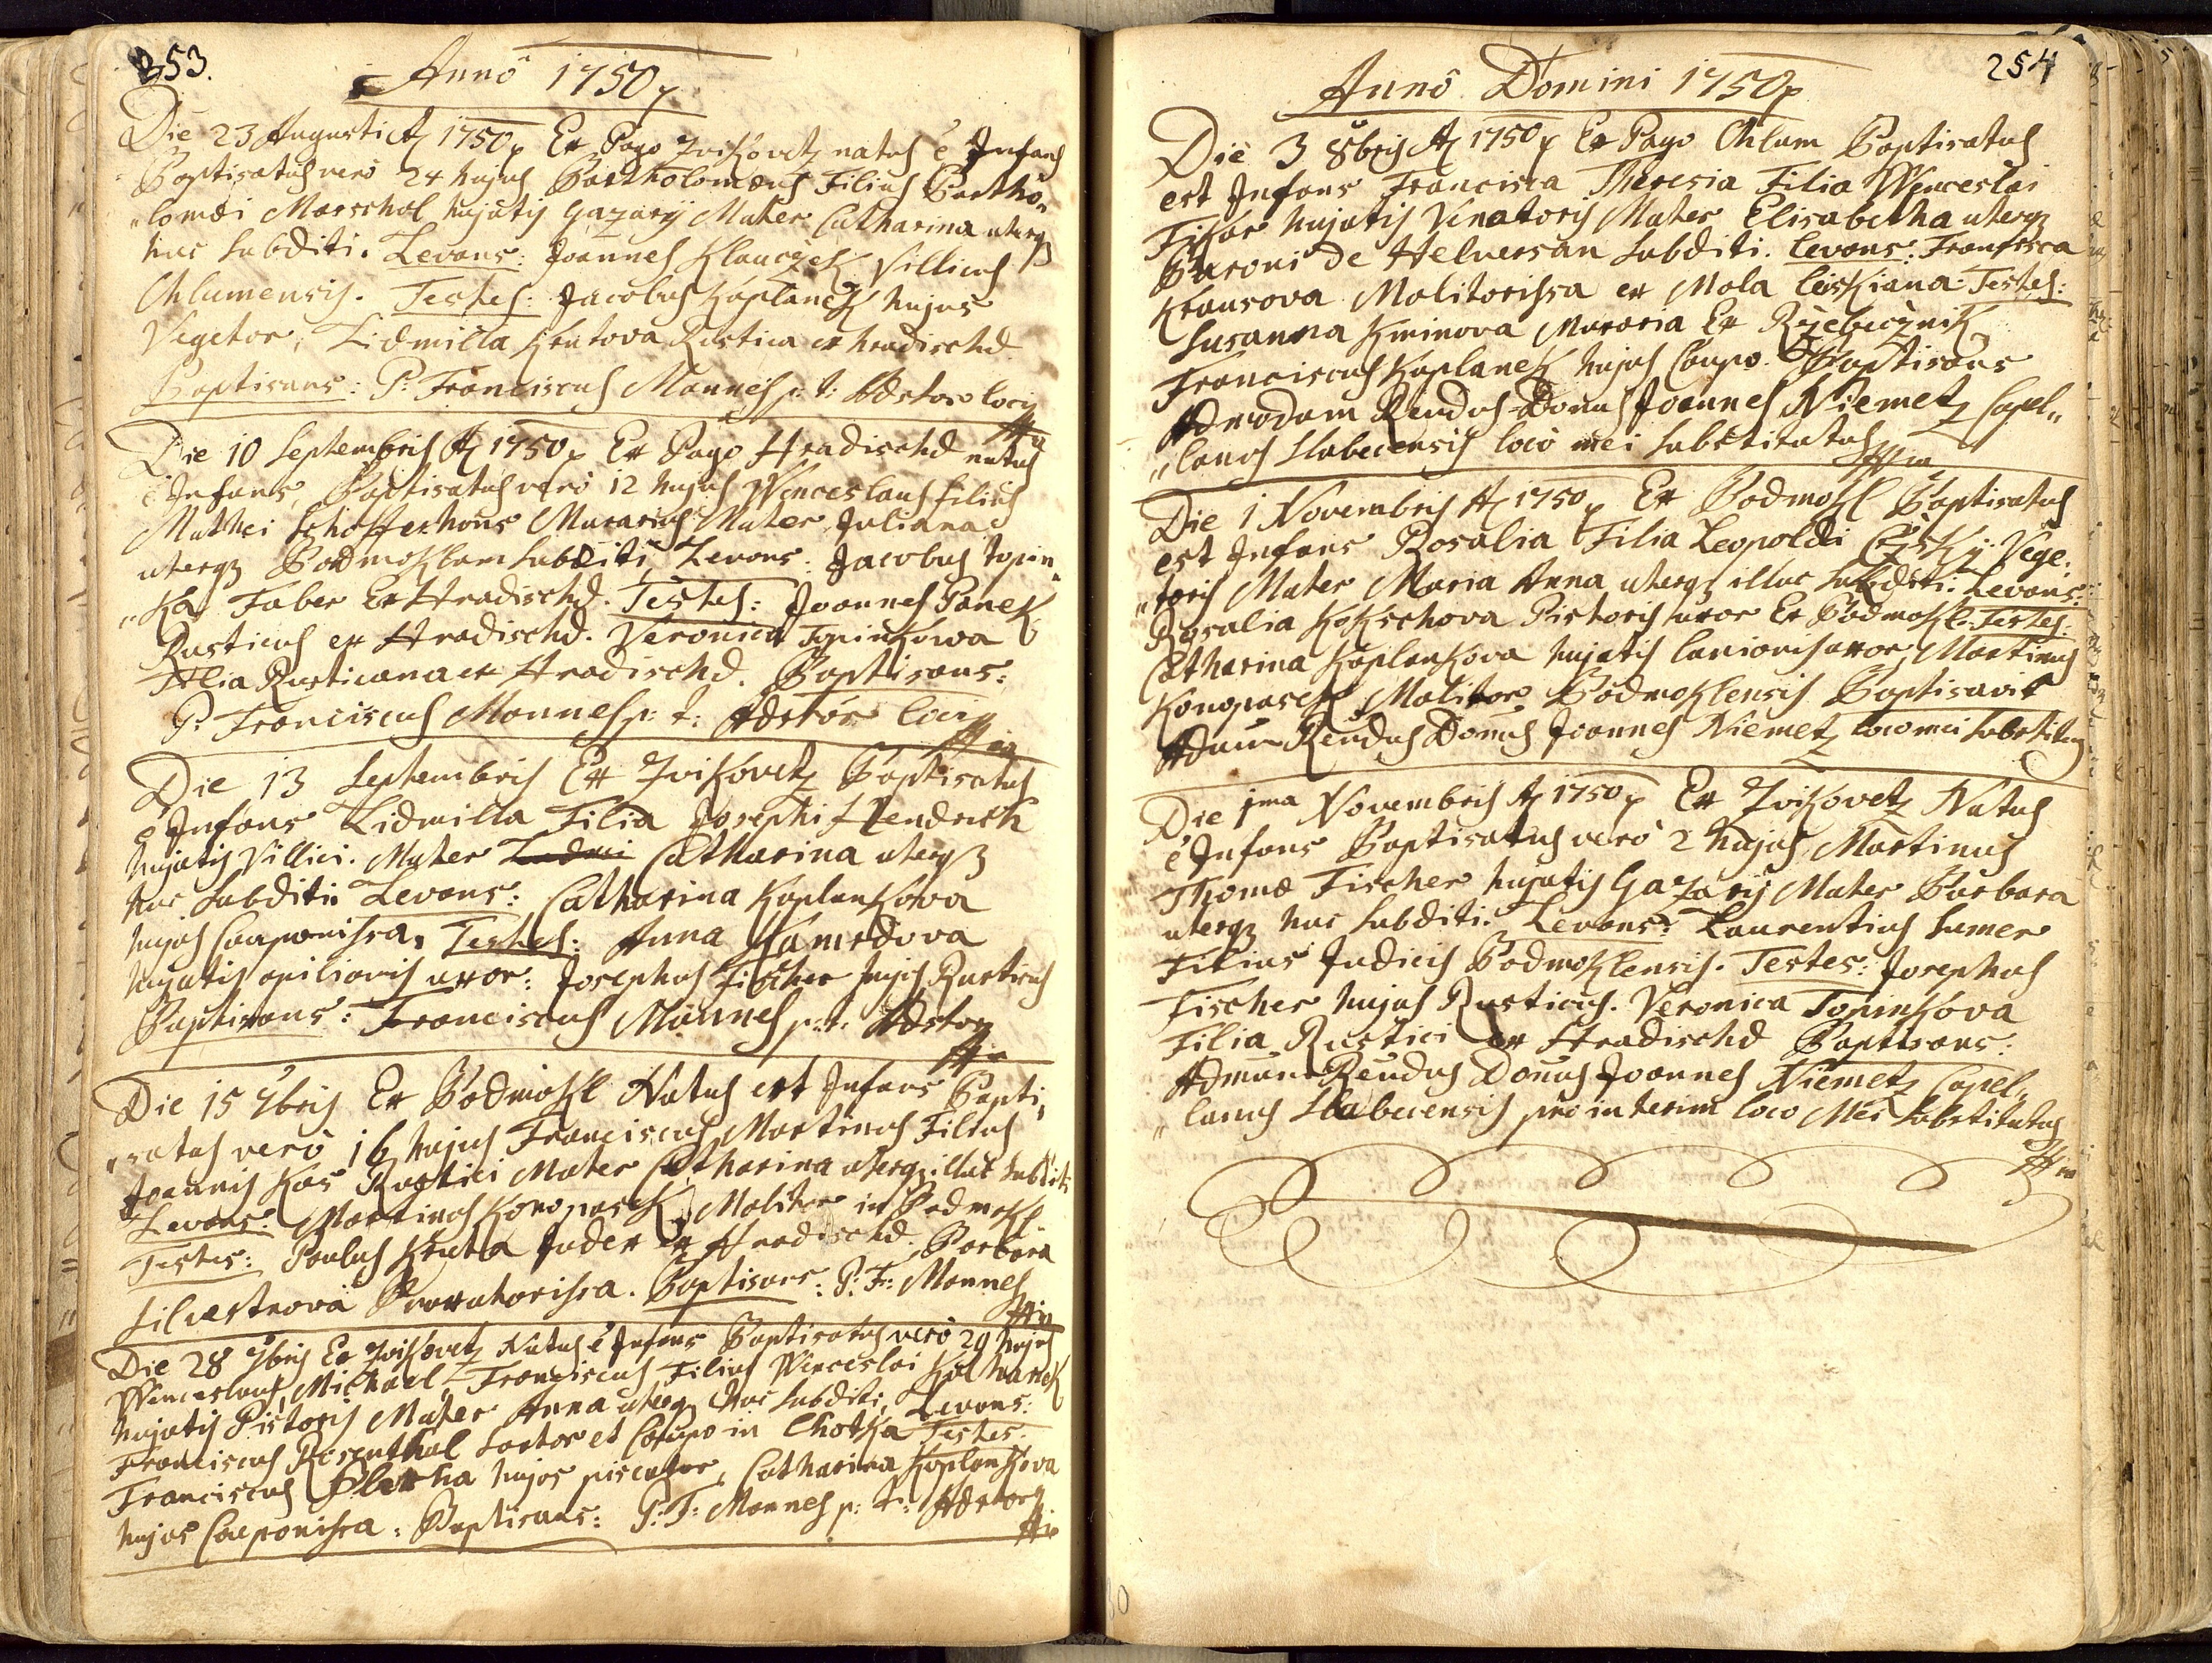 253.
Anno 1750
Die 23 Augusti A 1750 Ex Pago Zvikovetz natus e Infans
Baptisatus vero 24 hujus Bartholomæus Filius Bartho„
„lomæi Marschal hujatis Gazarij Mater Catharina uterq
huc subditi. Levans: Joannes Klauczek Villicus
Chlumensis. Testes: Jacobus Kaplanek hujas
Vegetor, Lidmilla Krutova Rustica ex Hradischd
Baptisans: P: Franciscus Mannes p: t: Adstor loci
Die 10 Septembris A 1750 Ex Pago Hradischd natus
e Infans, Baptisatus vero 12 hujus Wenceslaus filius
Mathei Schofferhons Murarius Mater Juliana
uterq Podmoklam subditi, Levans: Jacobus Topin„
„ka Faber Ex Hradischd. Testes: Joannes Panek
Rusticus ex Hradischd. Veronica Topinkowa
Filia Rusticana ex Hradischd. Baptisans:
P: Franciscus Mannes p: t: Adstor loci
Die 13 Septembris Ex Zvikovetz Baptisatus
e Infans Lidmilla Filia Josephi Hendrich
hujatis Villici. Mater Ludmi Catharina uterq
huc subditi Levans: Catharina Kaplankova
hujas Cauponissa, Testes: Anna Kamrdova
hujatis opilionis uxor: Josephus Fischer hujus Rusticus
Baptisans: Franciscus Mannes p: t: Adstor
Die 15 7bris Ex Podmokl Natus est Infans Bapti„
„satus vero 16 hujus Franciscus Martinus Filius
Joannis Kas Rustici Mater Catharina uterq illuc subditi
Levans: Martinus Konopasek Molitor in Podmokl
Testes: Paulus Kruta Judex ex Hradischd. Barbara
Silvestrova Braxatorissa. Baptisans: P: Fr: Mannes
Die 28 7bris Ex Zvikovetz Natus e Infans Baptisatus vero 29 hujus
Wenceslaus, Michael, Franciscus Filius Wenceslai Kolhanek
hujatis Pistoris Mater Anna uterq huc subditi, Levans:
Franciscus Rosenthal Sartor et Caupo in Lhotka Testes:
Franciscus Pletcha hujas piscator, Catharina Kaplankova
hujas Cauponissa: Baptisans: P: F: Mannes p: t: Adstor
254
Anno Domini 1750
Die 3 8bris A 1750 Ex Pago Chlum Baptisatus
est Infans Francisca Theresia Filia Wenceslai
Fikar hujatis Venatoris Mater Elisabetha uterq
Baroni de Helversan subditi. Levans: Francisca
Krausova Molitorissa ex Mola Leiskiana Testes:
Susanna Kminova Muraria Ex Rzebecznik
Franciscus Kaplanek hujas Caupo. Baptisans
Admodum Rendus Donus Joannes Niemetz Capel„
„lanus Slabecensis loco mei substitutus
Die 1 Novembris A 1750 Ex Podmokl Baptisatus
est Infans Rosalia Filia Leopoldi Czisky Vege„
„toris Mater Maria Anna uterq illuc subditi. Levans:
Rosalia Kokschova Pistoris uxor Ex Podmokl. Testes:
Catharina Kaplankova hujatis lanionis uxor, Martinus
Konopasek Molitor Podmoklensis Baptisavit
Admum Rendus Donus Joannes Niemetz loco mei substitus
Die 1ma Novembris A 1750 Ex Zvikovetz Natus
e Infans Baptisatus vero 2 hujus Martinus
Thomæ Fischer hujatis Gazarij Mater Barbara
uterq huc subditi. Levans: Laurentius Sumer
Filius Judicis Podmoklensis. Testes: Josephus
Fischer hujas Rusticus. Veronica Topinkova
Filia Rustici ex Hradischd Baptisans:
Admum Rendus Donus Joannes Niemetz Capel„
„lanus Slabecensis pro interim loco Mei Substitutus